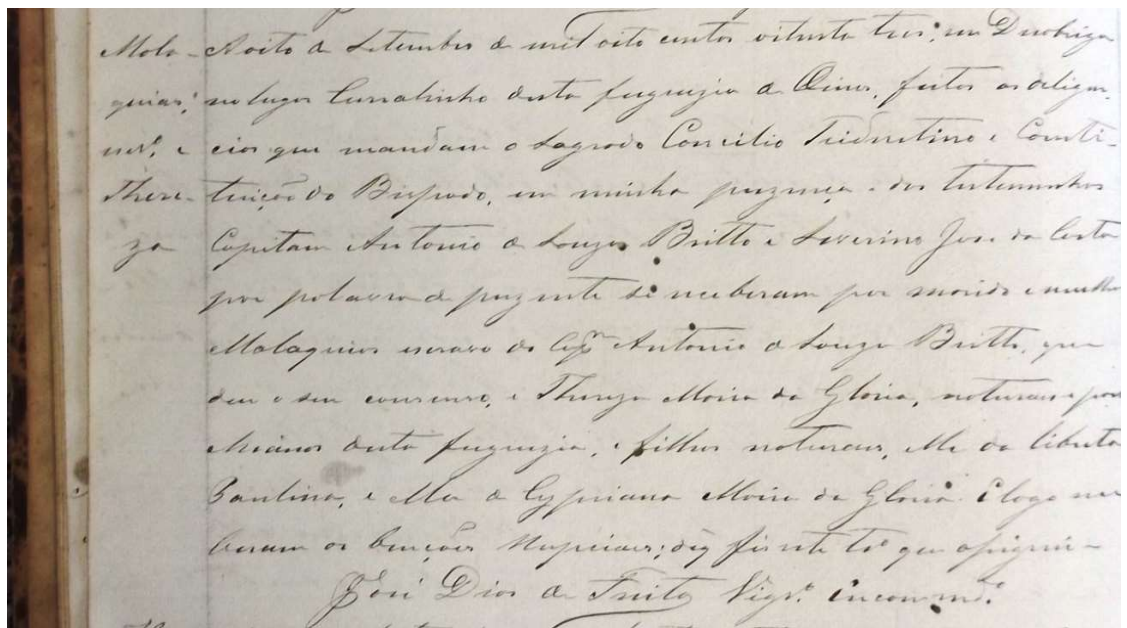 Mala- A oito de Setembro de mil oito centos oitenta tres, em Desobriga
quias, no lugar Curralinho desta freguezia de Oeiras, feitas as deligen-
escr.º e cias que mandam o Sagrado Concilio Tridentino e Consti-
There- tuição do Bispado, em minha prezença e das testemunhas
za Capitam Antonio de Souza Britto e Severino José da Costa
por palavra de prezente se receberam por marido e mulher
Malaquias escravo do Cap.m Antonio de Souza Britto, que
deu o seu concenso, e Thereza Maria da Gloria, naturaes e paro-
chianos desta freguezia, e filhos naturaes, elle da liberta
e ella de Cypriana Maria da Gloria. E logo rece
beram as bençãos Nupciaes; do q fiz este to que assignei-
José Dias de Freitas Vigr.º Encommd.º